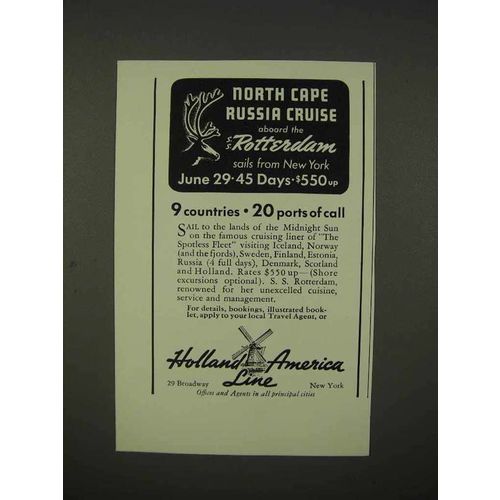 NORTH CAPE
RUSSIA CRUISE
aboard the
S.S. Rotterdam
sails from New York
June 29 · 45 Days · $550 up
9 countries • 20 ports of call
SAIL to the lands of the Midnight Sun
on the famous cruising liner of "The
Spotless Fleet" visiting Iceland, Norway
(and the fjords), Sweden, Finland, Estonia,
Russia (4 full days), Denmark, Scotland
and Holland. Rates $550 up—(Shore
excursions optional). S. S. Rotterdam,
renowned for her unexcelled cuisine,
service and management.
For details, bookings, illustrated book-
let, apply to your local Travel Agent, or
Holland America
Line
29 Broadway New York
Offices and Agents in all principal cities